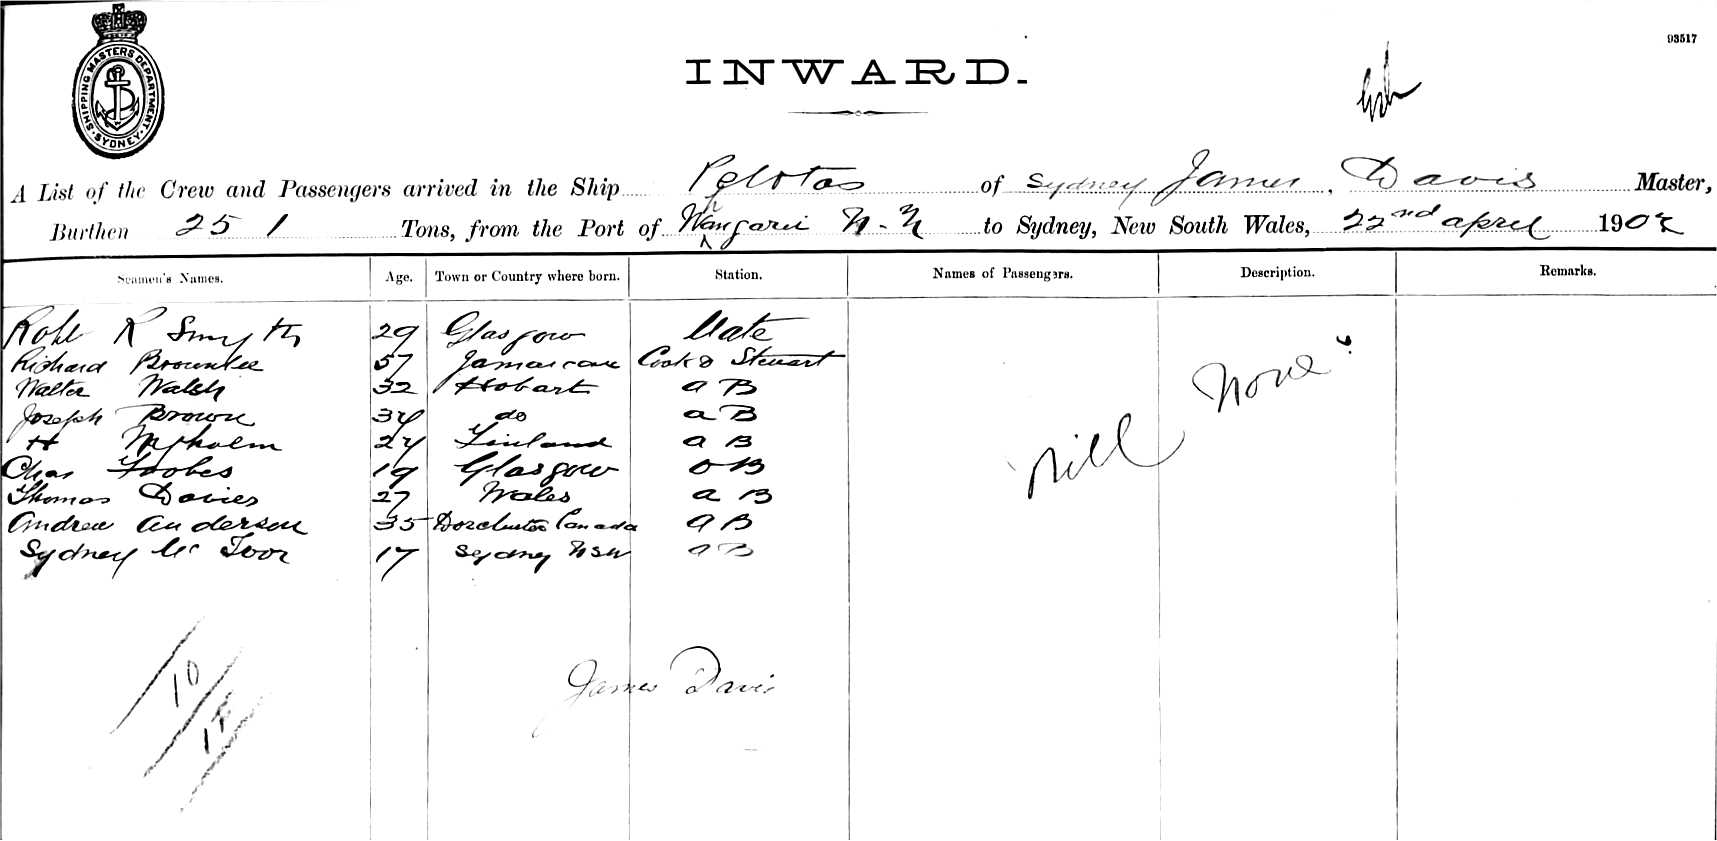 93517
SHIPPING MASTERS DEPARTMENT
SYDNEY
INWARD.
A List of the Crew and Passengers arrived in the Ship Pelotas of Sydney James Davis Master,
Burthen 251 Tons, from the Port of Whangarii N.Z to Sydney, New South Wales, 22nd april 1902
Seamen's Names. Age. Town or Country where born. Station. Names of Passengers. Description. Remarks.
Robt R Smyth 29 Glasgow Mate
Richard Brownlee 57 Jamaicau Cook & Steuart
Walter Walsh 32 Hobart a B
Joseph Brown 34 do a B
H Nyholm 24 Finland a B
Chas Foobes 19 Glasgow O B
Thomas Davies 27 Wales a B
Andrew Anderson 35 Dorchester Canada a B
Sydney Mc Ivor 17 Sydney NSW a B
Nill None
James Davis
10